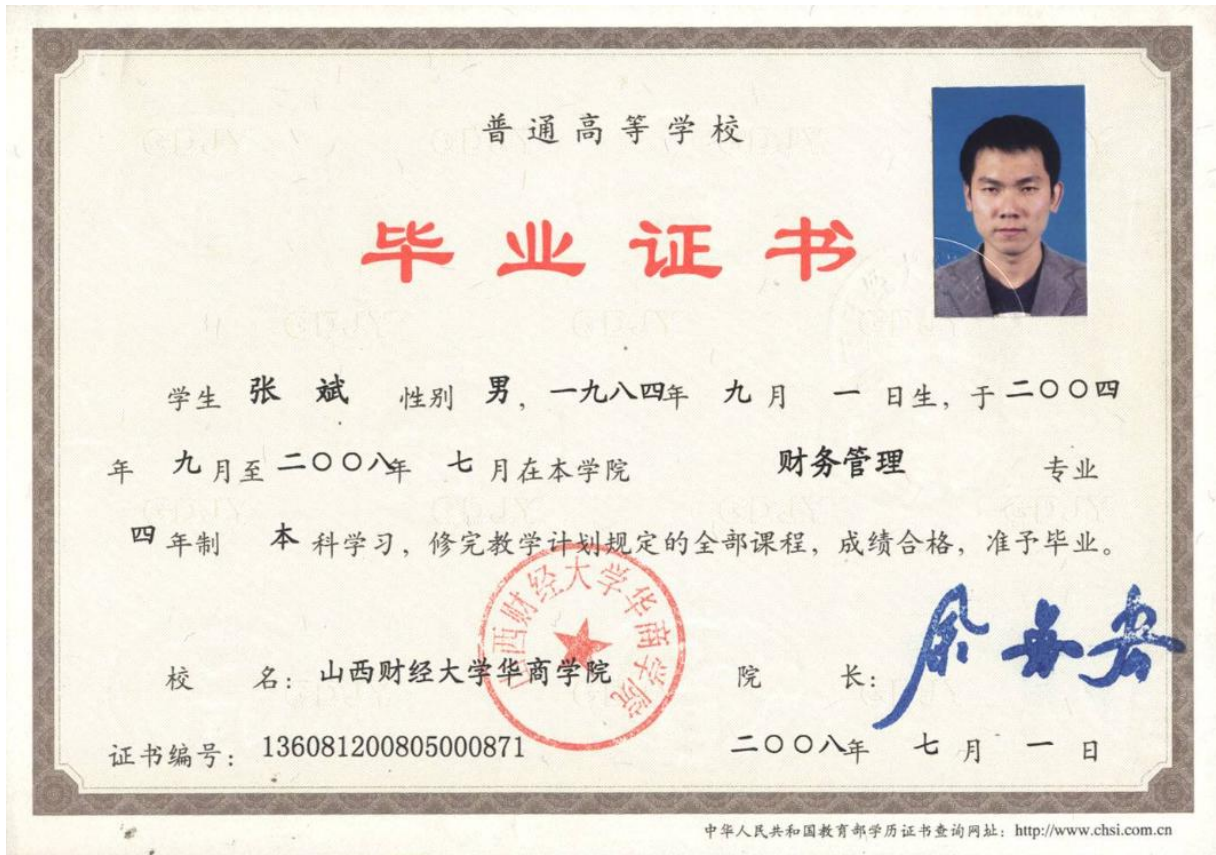 普通高等学校
毕业证书
学生 张 斌 性别 男，一九八四年 九 月 一 日生，于 二〇〇四
年 九 月至 二〇〇八年 七 月在本学院 财务管理 专业
四 年制 本 科学习，修完教学计划规定的全部课程，成绩合格，准予毕业。
山西财经大学华商学院
校 名：山西财经大学华商学院 院 长：
证书编号：136081200805000871 二〇〇八年 七 月 一 日
中华人民共和国教育部学历证书查询网址：http://www.chsi.com.cn